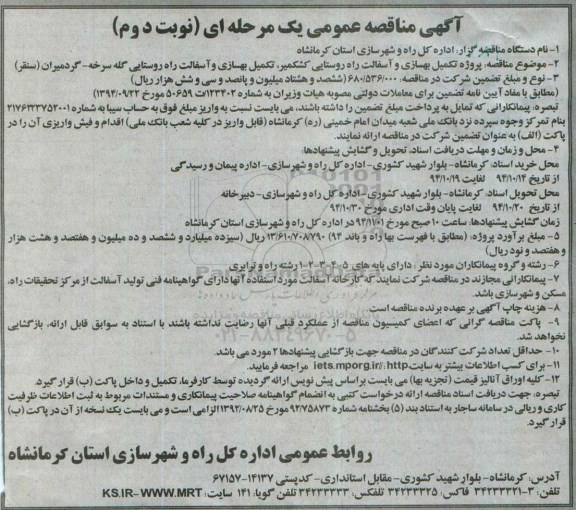 آگهی مناقصه عمومی یک مرحله ای (نوبت دوم)
۱- نام دستگاه مناقصه گزار: اداره کل راه و شهرسازی استان کرمانشاه
۲- موضوع مناقصه: پروژه تکمیل بهسازی و آسفالت راه روستایی کشکمیر، تکمیل بهسازی و آسفالت راه روستایی گله سرخه- گردمیران (سنقر)
۳- نوع و مبلغ تضمین شرکت در مناقصه: ۶۸۰/۵۳۶/۰۰۰ (ششصد و هشتاد میلیون و پانصد و سی و شش هزار ریال)
(مطابق با مفاد آیین نامه تضمین برای معاملات دولتی مصوبه هیات وزیران به شماره ۱۲۳۴۰۲/ت ۵۰۶۵۹ مورخ ۱۳۹۴/۰۹/۲۲)
تبصره: پیمانکارانی که تمایل به پرداخت مبلغ تضمین را داشته باشند، می بایست نسبت به واریز مبلغ فوق به حساب سیبا به شماره ۲۱۷۶۳۳۷۵۲۰۰۱
بنام تمرکز وجوه سپرده نزد بانک ملی شعبه میدان امام خمینی (ره) کرمانشاه (قابل واریز در کلیه شعب بانک ملی) اقدام و فیش واریزی آن را در
پاکت (الف) به عنوان تضمین شرکت در مناقصه ارائه نمایند.
۴- محل و زمان و مهلت دریافت اسناد، تحویل و گشایش پیشنهادها:
محل خرید اسناد: کرمانشاه- بلوار شهید کشوری- اداره کل راه و شهرسازی- اداره پیمان و رسیدگی
از تاریخ ۹۴/۱۰/۱۴ لغایت ۹۴/۱۰/۱۹
محل تحویل اسناد: کرمانشاه- بلوار شهید کشوری- اداره کل راه و شهرسازی- دبیرخانه
از تاریخ ۹۴/۱۰/۲۰ لغایت پایان وقت اداری مورخ ۹۴/۱۰/۳۰
زمان گشایش پیشنهادها: ساعت ۱۰ صبح مورخ ۹۴/۱۱/۰۱ در اداره کل راه و شهرسازی استان کرمانشاه
۵- مبلغ برآورد پروژه: (مطابق با فهرست بها راه و باند ۹۴) ۱۳/۶۱۰/۷۰۸/۷۹۰ ریال (سیزده میلیارد و ششصد و ده میلیون و هفتصد و هشت هزار
و هفتصد و نود ریال)
۶- رشته و گروه پیمانکاران مورد نظر: دارای پایه های ۵-۴-۳-۲-۱ رشته راه و ترابری
۷- پیمانکارانی مجازند در مناقصه شرکت نمایند که کارخانه آسفالت مورد استفاده آنها دارای گواهینامه فنی تولید آسفالت از مرکز تحقیقات راه،
مسکن و شهرسازی باشد.
۸- هزینه چاپ آگهی بر عهده برنده مناقصه است.
۹- پاکت مناقصه گرانی که اعضای کمیسیون مناقصه از عملکرد قبلی آنها رضایت نداشته باشند با استناد به سوابق قابل ارائه، بازگشایی
نخواهد شد.
۱۰- حداقل تعداد شرکت کنندگان در مناقصه جهت بازگشایی پیشنهادها ۲ مورد می باشد.
۱۱- برای کسب اطلاعات بیشتر به سایت http://iets.mporg.ir مراجعه فرمایید.
۱۲- کلیه اوراق آنالیز قیمت (تجزیه بها) می بایست براساس پیش نویس ارائه گردیده توسط کارفرما، تکمیل و داخل پاکت (ب) قرار گیرد.
تبصره: جهت دریافت اسناد مناقصه ارائه درخواست کتبی به انضمام گواهینامه صلاحیت پیمانکاری و مستندات مربوط به ثبت اطلاعات ظرفیت
کاری و ریالی در سامانه ساجار به استناد بند (۵) بخشنامه شماره ۹۲/۷۵۸۷۳ مورخ ۱۳۹۲/۰۸/۲۵ الزامی است و می بایست یک نسخه از آن در پاکت (ب)
قرار گیرد.
روابط عمومی اداره کل راه و شهرسازی استان کرمانشاه
آدرس: کرمانشاه- بلوار شهید کشوری- مقابل استانداری- کدپستی ۱۴۱۳۷-۶۷۱۵۷
تلفن: ۳-۳۴۲۳۳۳۲۱ فاکس: ۳۴۲۳۳۳۲۵ تلفکس: ۳۴۲۳۳۳۳۳ تلفن گویا: ۱۴۱ سایت: KS.IR- WWW.MRT